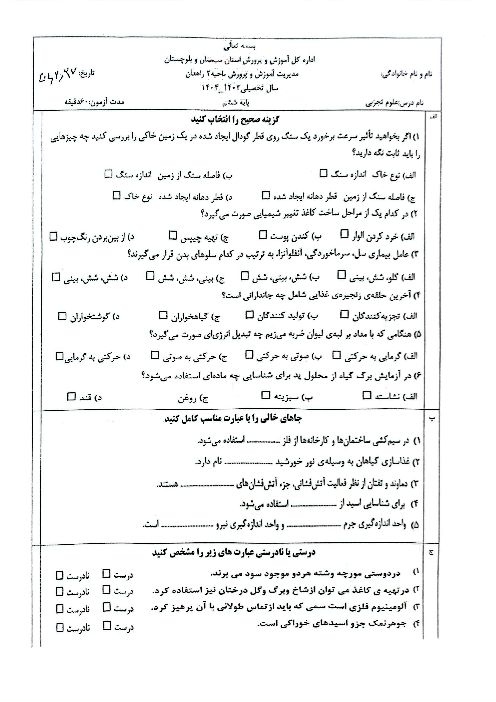 بسمه تعالی
اداره کل آموزش و پرورش استان سیستان و بلوچستان
نام و نام خانوادگی: مدیریت آموزش و پرورش ناحیه ۲ زاهدان تاریخ:
سال تحصیلی ۱۴۰۳_۱۴۰۴
نام درس: علوم تجربی پایه ششم مدت آزمون: ۶۰ دقیقه
الف گزینه صحیح را انتخاب کنید
۱) اگر بخواهید تأثیر سرعت برخورد یک سنگ روی قطر گودال ایجاد شده در یک زمین خاکی را بررسی کنید چه چیزهایی
را باید ثابت نگه دارید؟
الف) نوع خاک اندازه سنگ ب) فاصله سنگ از زمین اندازه سنگ
ج) فاصله سنگ از زمین قطر دهانه ایجاد شده د) قطر دهانه ایجاد شده نوع خاک
۲) در کدام یک از مراحل ساخت کاغذ تغییر شیمیایی صورت می‌گیرد؟
الف) خرد کردن الوار ب) کندن پوست ج) تهیه چیپس د) از بین‌بردن رنگ‌چوب
۳) عامل بیماری سل، سرماخوردگی، آنفلوآنزا، به ترتیب در کدام سلوهای بدن قرار می‌گیرند؟
الف) گلو، شش، بینی ب) شش، بینی، شش ج) بینی، شش، شش د) شش، شش، بینی
۴) آخرین حلقه‌ی زنجیره‌ی غذایی شامل چه جاندارانی است؟
الف) تجزیه‌کنندگان ب) تولید کنندگان ج) گیاهخواران د) گوشتخواران
۵) هنگامی که با مداد بر لبه‌ی لیوان ضربه می‌زیم چه تبدیل انرژی‌ای صورت می‌گیرد؟
الف) گرمایی به حرکتی ب) صوتی به حرکتی ج) حرکتی به صوتی د) حرکتی به گرمایی
۶) در آزمایش برگ گیاه از محلول ید برای شناسایی چه ماده‌ای استفاده می‌شود؟
الف) نشاسته ب) سبزینه ج) روغن د) قند
ب جاهای خالی را با عبارت مناسب کامل کنید
۱) در سیم‌کشی ساختمان‌ها و کارخانه‌ها از فلز ............ استفاده می‌شود.
۲) غذاسازی گیاهان به وسیله‌ی نور خورشید ............ نام دارد.
۳) دماوند و تفتان از نظر فعالیت آتش‌فشانی، جزء آتش‌فشان‌های ............ هستند.
۴) برای شناسایی اسید از ............ استفاده می‌شود.
۵) واحد اندازه‌گیری جرم ............ و واحد اندازه‌گیری نیرو ............ است.
ج درستی یا نادرستی عبارت های زیر را مشخص کنید
۱) دردوستی مورچه وشته هردو موجود سود می برند. درست نادرست
۲) درتهیه ی کاغذ می توان ازشاخ وبرگ وگل درختان نیز استفاده کرد. درست نادرست
۳) آلومینیوم فلزی است سمی که باید ازتماس طولانی با آن پرهیز کرد. درست نادرست
۴) جوهرنمک جزو اسیدهای خوراکی است. درست نادرست